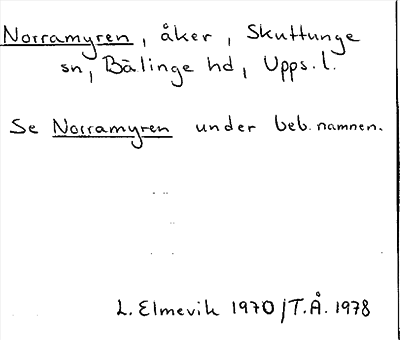 Norramyren, åker, Skuttunge
sn, Bälinge hd, Upps.l.
Se Norramyren under beb.namnen.
L. Elmevik 1970/T.Å. 1978